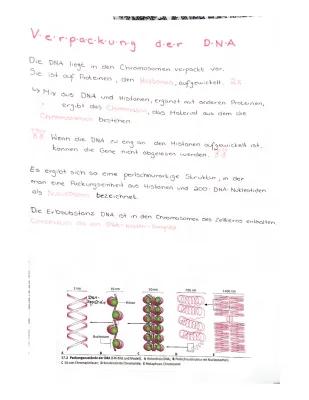 Verpackung der DNA
Die DNA liegt in den Chromosomen verpackt vor.
Sie ist auf Proteinen, den Histonen, aufgewickelt.
↳ Mix aus DNA und Histonen, ergänzt mit anderen Proteinen,
ergibt das Chromatin, das Material aus dem die
Chromosomen bestehen.
Wenn die DNA zu eng an den Histonen aufgewickelt ist,
können die Gene nicht abgelesen werden.
Es ergibt sich so eine perlschnurartige Struktur, in der
man eine Packungseinheit aus Histonen und 200 DNA-Nukleotiden
als Nukleosom bezeichnet.
Die Erbsubstanz DNA ist in den Chromosomen des Zellkerns enthalten.
2 nm 10 nm 30 nm 700 nm 1400 nm
DNA-
Histon
Nukleosom
A B C D E